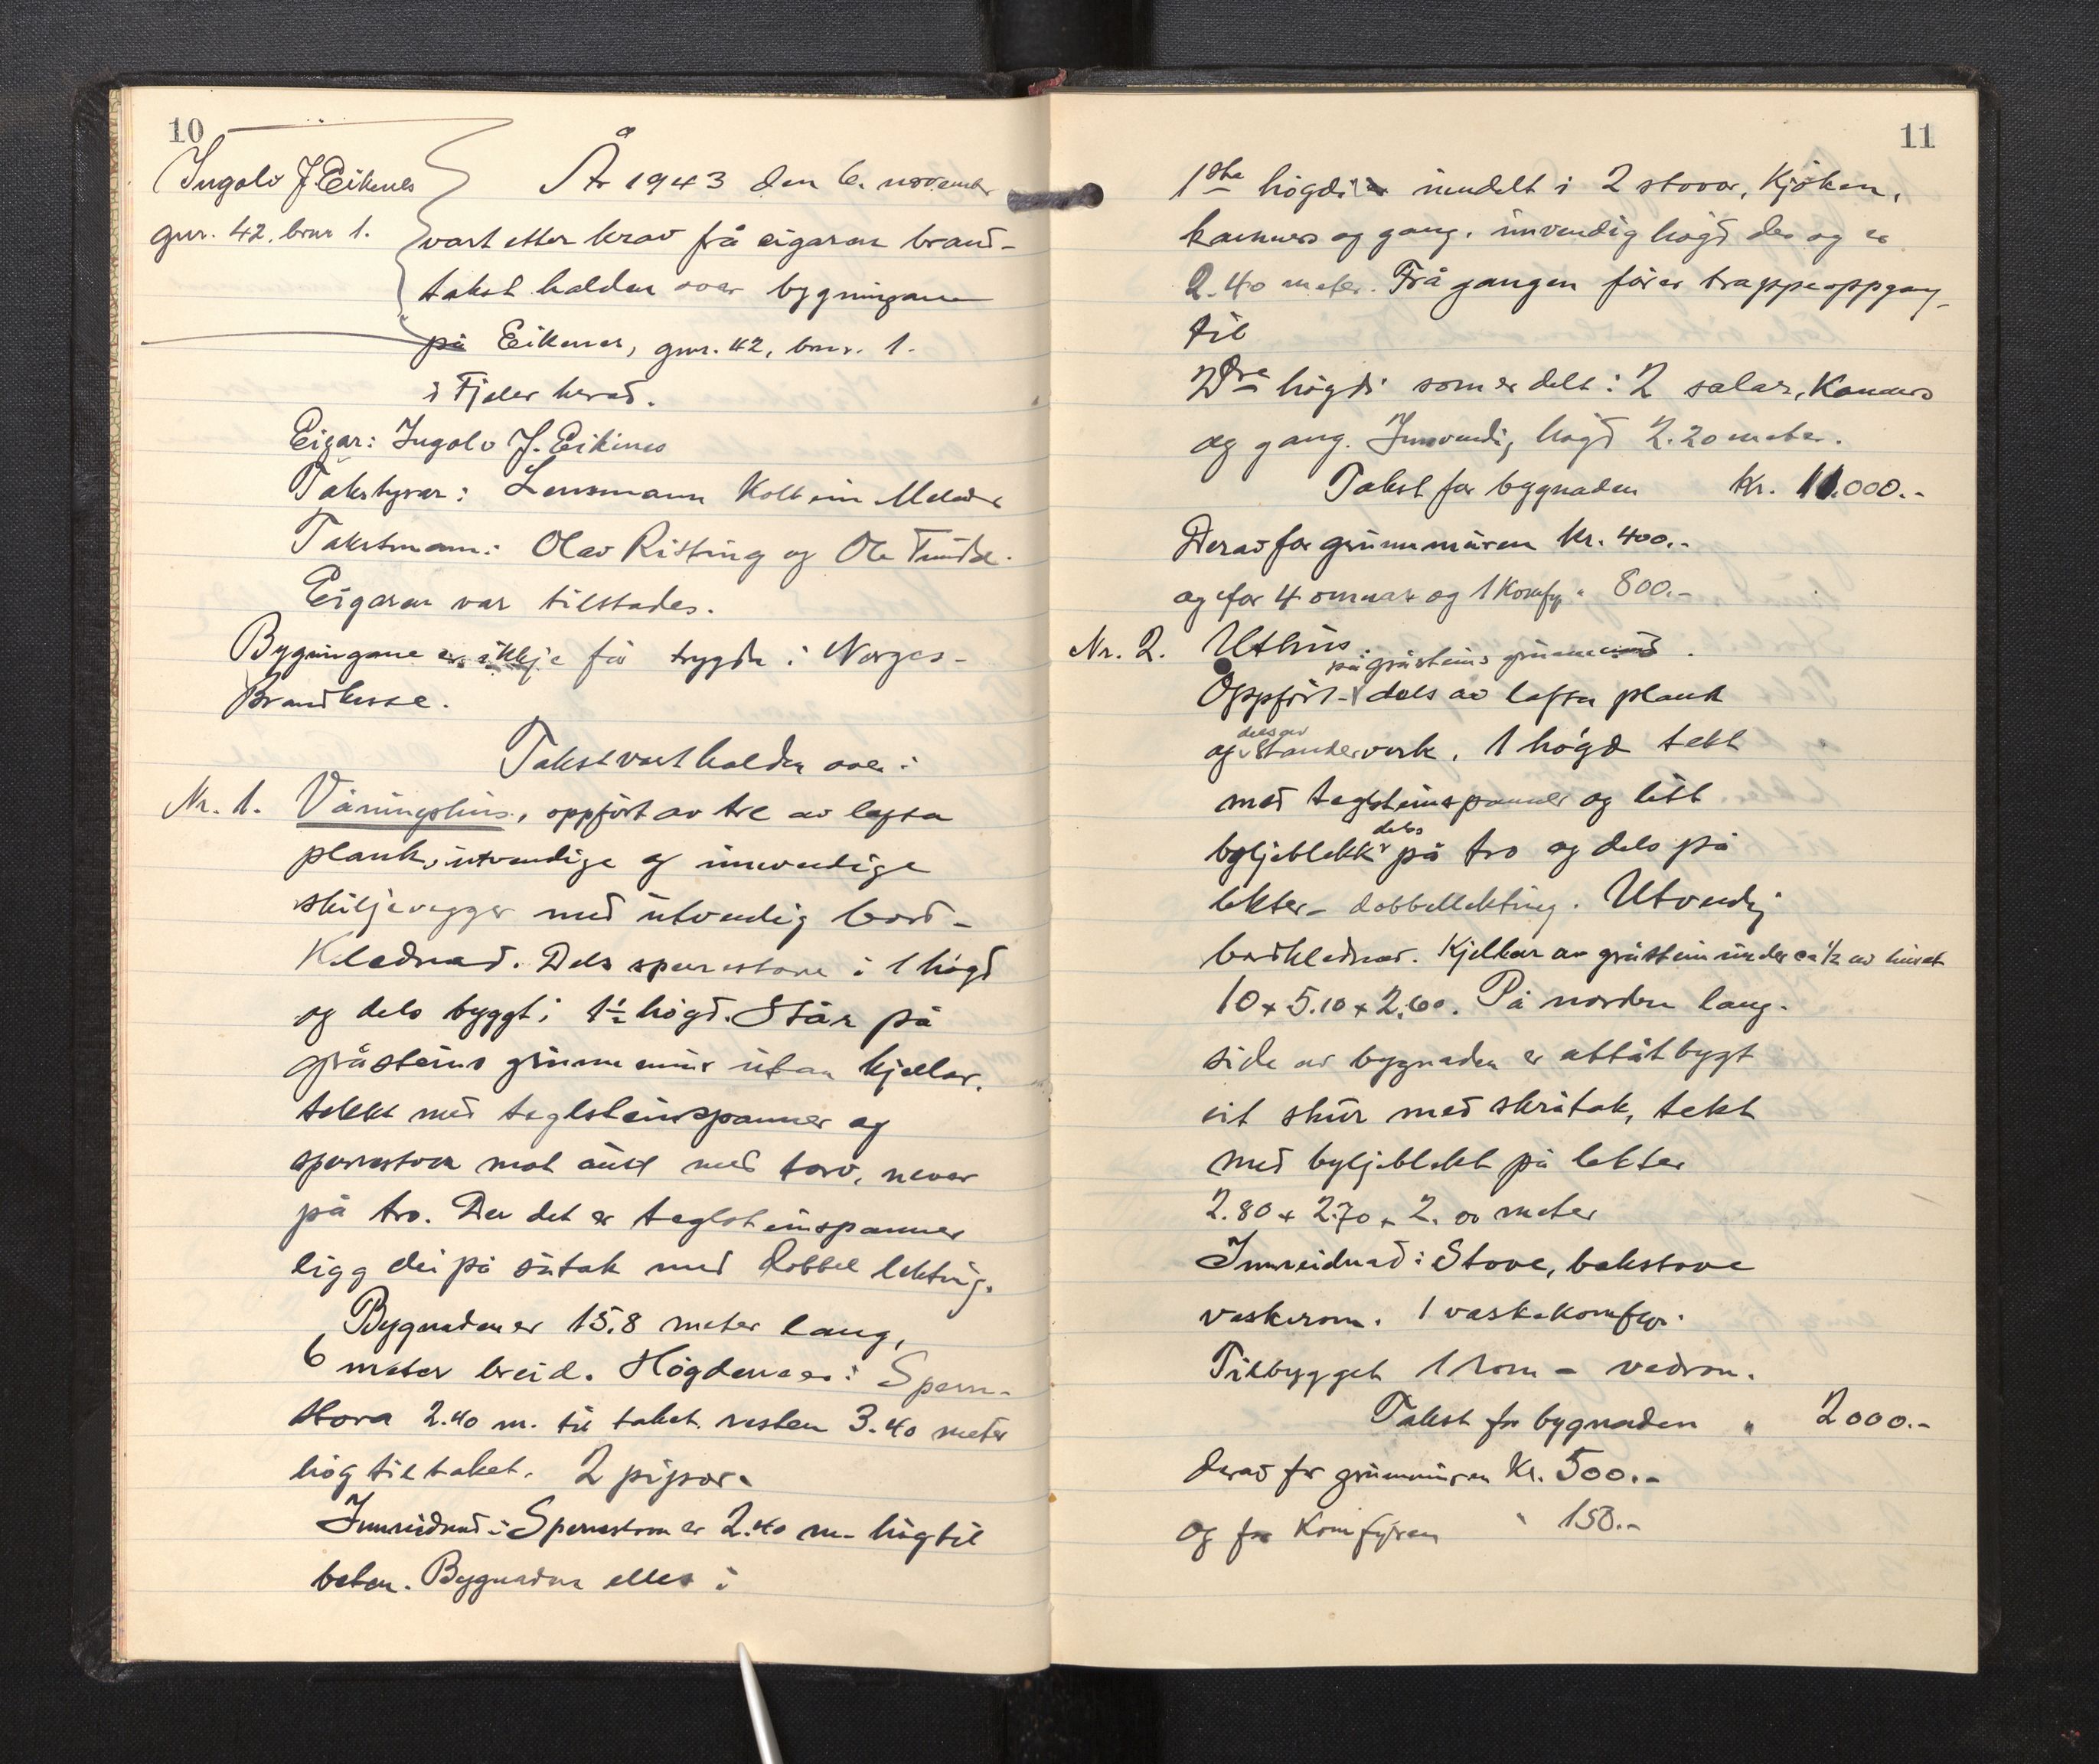 10
Ingolv J. Eikenes
gnr. 42, bnr 1.
År 1943 den 6. november
vart etter krav frå eigaren brand-
takst halden over bygningane
på Eikenes, gnr. 42, bnr. 1.
i Fjaler herad.
Eigar: Ingolv J. Eikenes
Takstyrar: Lensmann Kolbein Melvær
Takstmenn: Olav Risting og Ole
Eigaren var tilstades.
Bygningane er ikkje før trygda i Norges-
Brandkasse.
Takst vart halden over:
Nr. 1. Våningshus, oppført av tre av lafta
plank, utvendige og innvendige
skiljevegger med utvendig bord-
Klednad. Dels sperrestove i 1 høgd
og dels byggt i 1½ høgd. Står på
gråsteins grunnmur utan kjellar.
tekkt med teglsteinspanner og
sperrestova mot aust med torv, never
på tro. Der det er teglsteinspanner
ligg dei på sutak med dobbel lekting.
Bygnaden er 15.8 meter lang,
6 meter breid. Høgdene er: Sperre-
stova 2.40 m. til taket resten 3.40 meter
høg til taket. 2 pipor.
Innreidnad: Sperrestova er 2.40 m. høg til
beten. Bygnaden elles:
11
1ste høgdi inndelt i 2 stovor, Kjøken,
kammers og gang. innvendig høgd der og er
2.40 meter. Frå gangen fører trappeoppgang
til
2dre høgdi som er delt i 2 salar, Kammers
og gang. Innvendig høgd 2.20 meter.
Takst for bygnaden Kr. 11.000.-
Derav for grunnmuren Kr. 400.-
og for 4 omnar og 1 Komfyr " 800.-
Nr. 2. Uthus
på gråsteins grunnmur.
Oppført - dels av lafta plank
dels av
og standerverk. 1 høgd tekt
med teglsteinspanner og litt
dels
bylgjeblekk på tro og dels på
lekter - dobbellekting. Utvendig
bordklednad. Kjellar av gråstein under ca ½ av huset
10 x 5.10 x 2.60. På nordre lang-
side av bygnaden er attåtbygt
eit skur med skråtak, tekt
med bylgjeblekk på lekter
2.80 x 2.70 x 2.00 meter
Innreidnad: Stove, bakstove
vaskerom. 1 vaskekomfyr.
Tilbygget 1 rom - vedrom.
Takst for bygnaden " 2000.-
derav for grunnmuren Kr. 500.-
og for Komfyren " 150.-